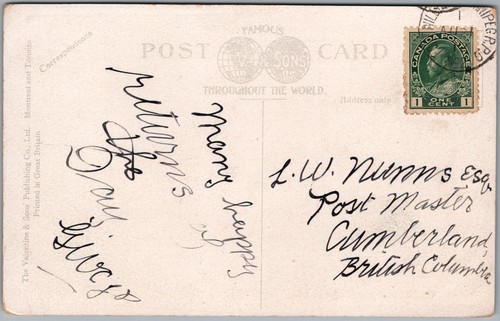 POST CARD
FAMOUS
V & SONS
THROUGHOUT THE WORLD.
Correspondence
Address only
The Valentine & Sons' Publishing Co., Ltd. Montreal and Toronto
Printed in Great Britain.
CANADA POSTAGE
1 ONE CENT 1
Many happy
returns
of the
Day.
L. W. Nunns Esq.
Post Master
Cumberland,
British Columbia